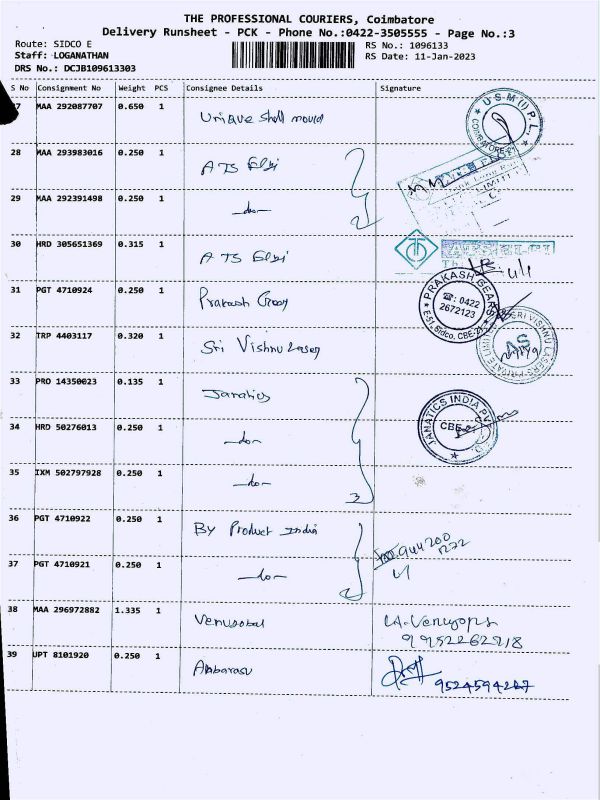 THE PROFESSIONAL COURIERS, Coimbatore
Delivery Runsheet - PCK - Phone No.:0422-3505555 - Page No.:3
Route: SIDCO E
RS No.: 1096133
Staff: LOGANATHAN
RS Date: 11-Jan-2023
DRS No.: DCJB109613303
S No Consignment No Weight PCS Consignee Details Signature
7 MAA 292087707 0.650 1 Unique Shell mould
U S M (I) P. L.
COIMBATORE-21
28 MAA 293983016 0.250 1 ATS Elgi
29 MAA 292391498 0.250 1 -do-
30 HRD 305651369 0.315 1 ATS Elgi
31 PGT 4710924 0.250 1 Prakash Gear
PRAKASH GEARS
☎: 0422
2672123
E-51, Sidco, CBE-21
32 TRP 4403117 0.320 1 Sri Vishnu Laser
SRI VISHNU LASERS PRIVATE LIMITED
33 PRO 14350023 0.135 1 Janatics
34 HRD 50276013 0.250 1 -do-
JANATICS INDIA PV
CBE
35 IXM 502797928 0.250 1 -do-
36 PGT 4710922 0.250 1 By Product India
37 PGT 4710921 0.250 1 -do-
38 MAA 296972882 1.335 1 Venugopal
9952262218
39 UPT 8101920 0.250 1 Anbarasu